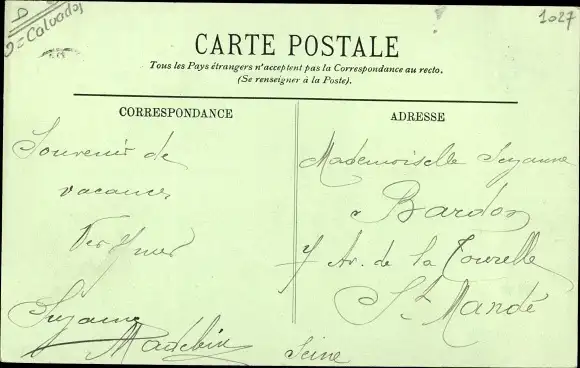 Calvados
1027
CARTE POSTALE
Tous les Pays étrangers n'acceptent pas la Correspondance au recto.
(Se renseigner à la Poste).
CORRESPONDANCE
Souvenir de
vacances
Suzanne
ADRESSE
Mademoiselle Suzanne
Bardon
7 Av. de la Tourelle
St Mandé
Seine